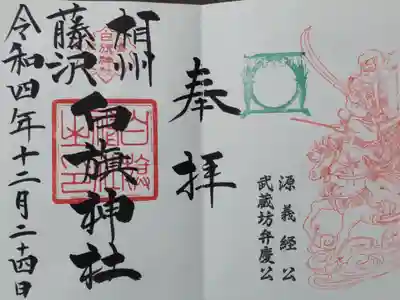 源義経公
武蔵坊弁慶公
奉拝
相州
藤沢
白旗神社
令和四年十二月二十四日